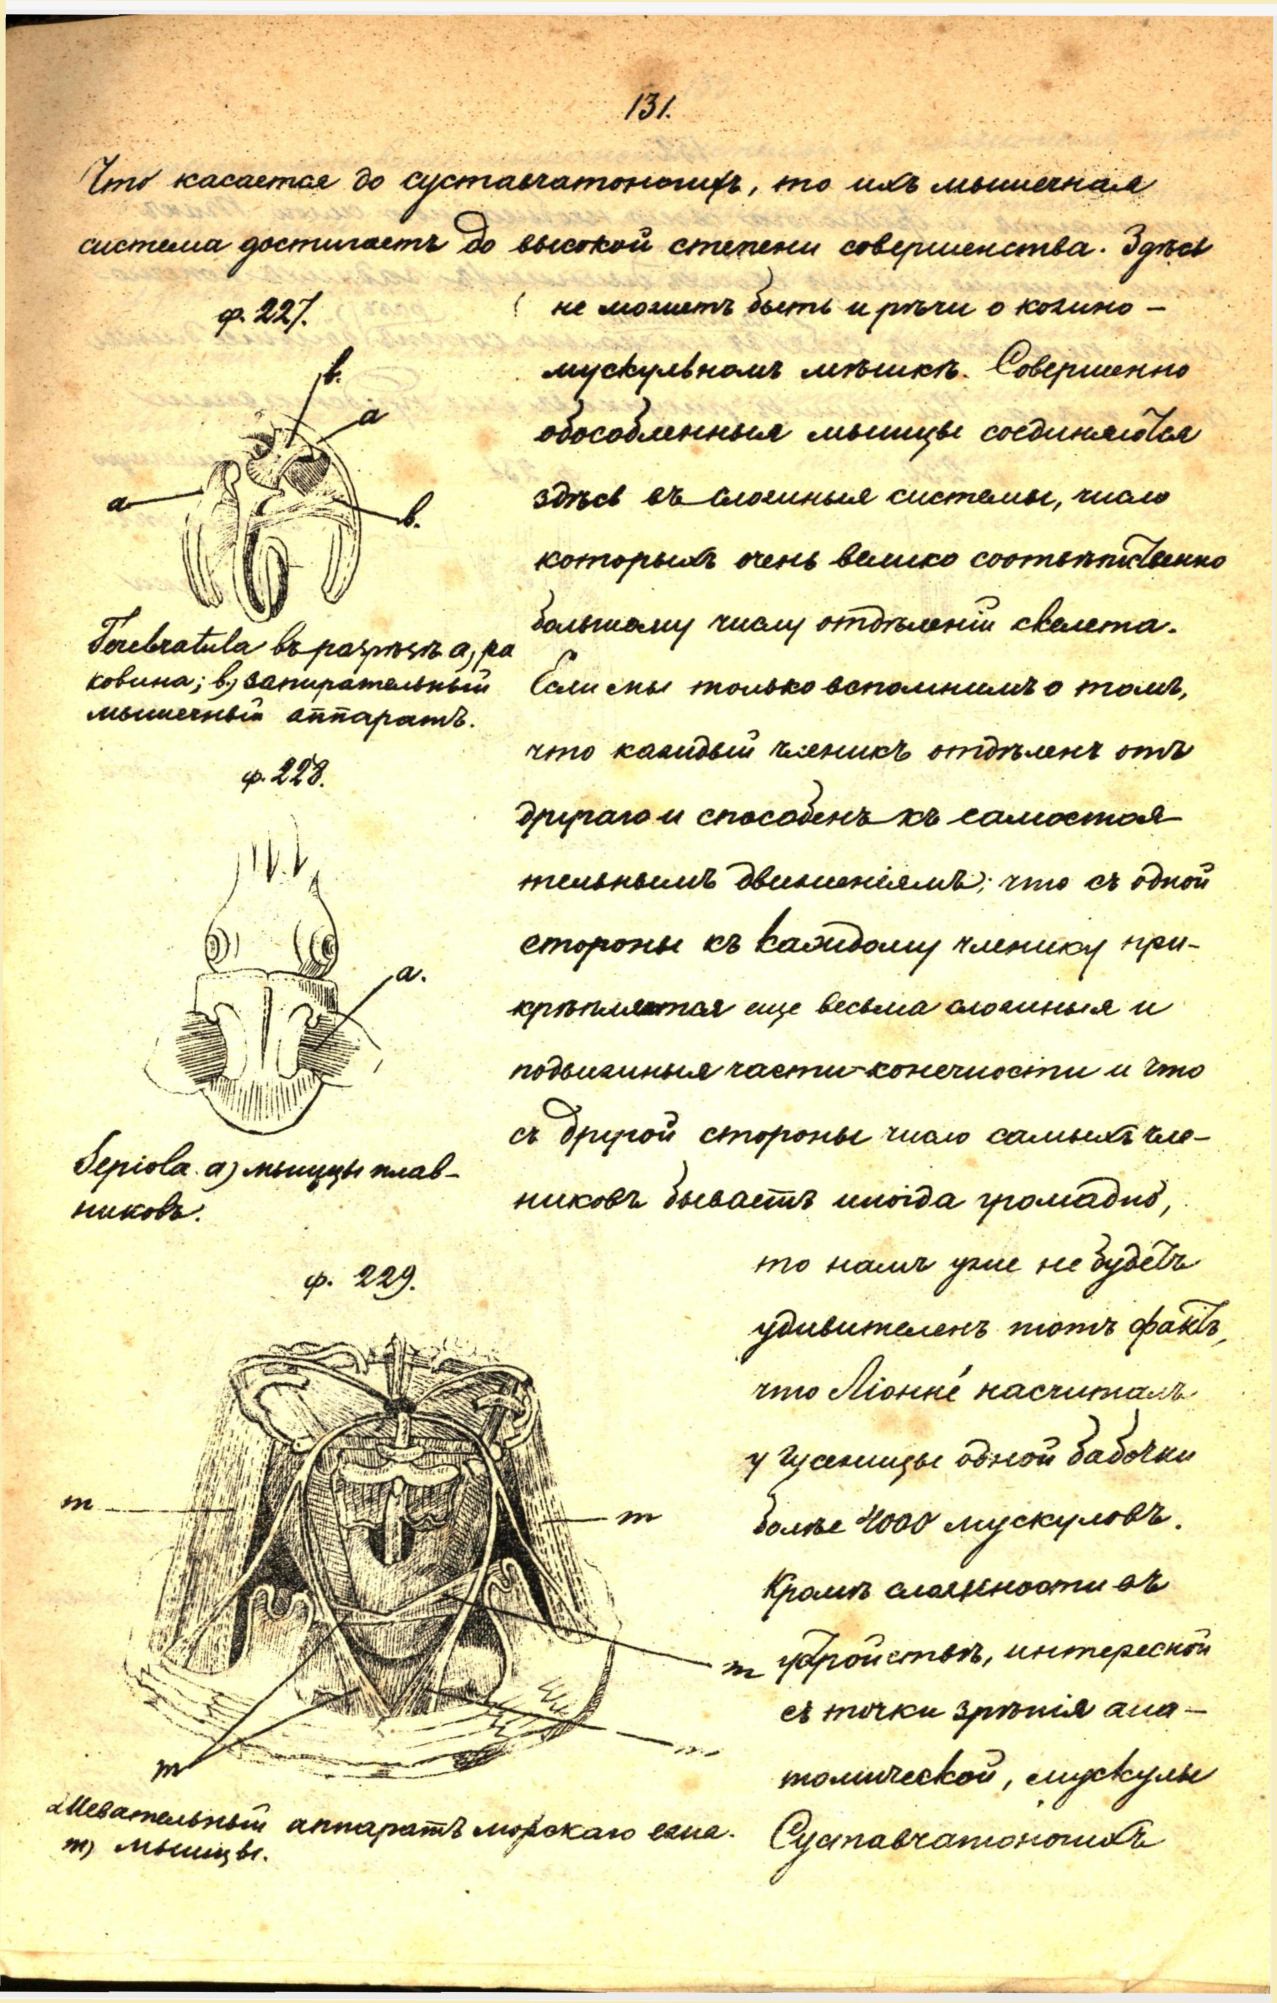 131.
Что касается до суставчатоногихъ, то ихъ мышечная
система достигаетъ до высокой степени совершенства. Здѣсь
не можетъ быть и рѣчи о кожно-
мускульномъ мѣшкѣ. Совершенно
обособленныя мышцы соединяются
здѣсь въ сложныя системы, число
которыхъ очень велико соотвѣтственно
большому числу отдѣленій скелета.
Если мы только вспомнимъ о томъ,
что каждый членикъ отдѣленъ отъ
другаго и способенъ къ самостоя-
тельнымъ движеніямъ; что съ одной
стороны къ каждому членику при-
крѣпляются еще весьма сложныя и
подвижныя части-конечности и что
съ другой стороны число самыхъ чле-
никовъ бываетъ иногда громадно,
то намъ уже не будетъ
удивителенъ тотъ фактъ,
что Ліонне́ насчиталъ
у гусеницы одной бабочки
болѣе 4000 мускуловъ.
Кромѣ сложности въ
устройствѣ, интересной
съ точки зрѣнія ана-
томической, мускулы
Суставчатоногихъ
ф. 227.
b.
a
a
b.
Terebratula въ разрѣзѣ a) ра
ковина; b) запирательный
мышечный аппаратъ.
ф. 228.
a.
Sepiola. a) мышцы плав-
никовъ.
ф. 229.
m
m
m
m
m
Жевательный аппаратъ морскаго ежа.
m) мышцы.